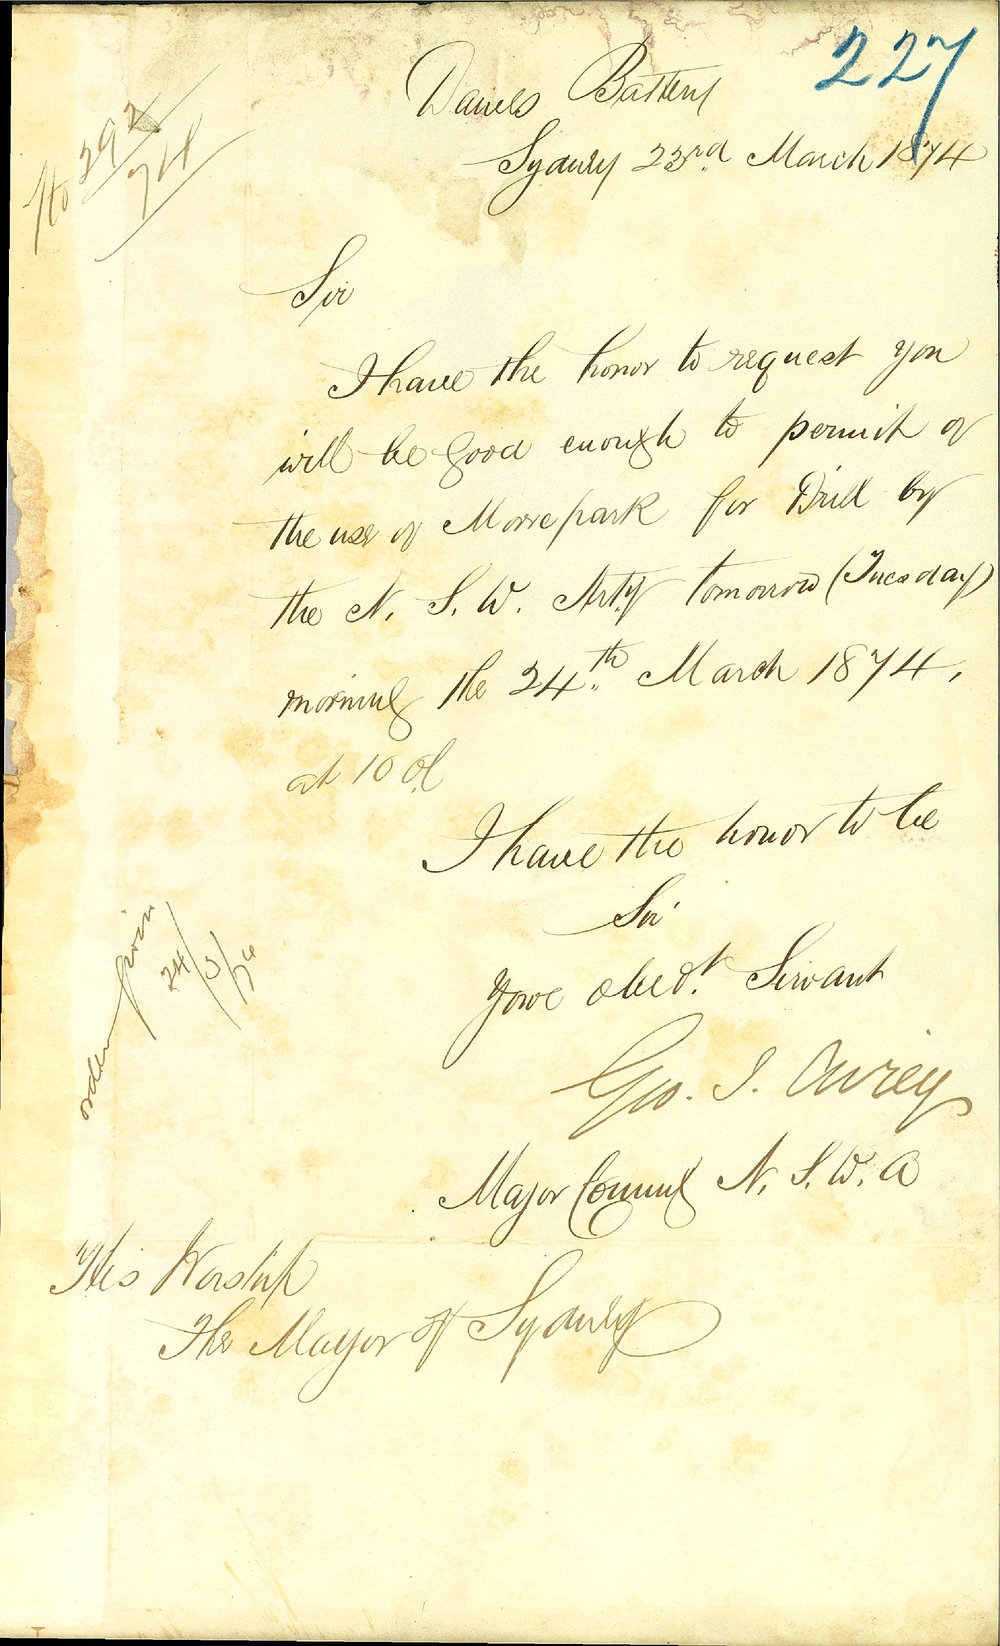 227
No 292
74
Dawes Battery
Sydney 23rd March 1874
Sir
I have the honor to request you
will be good enough to permit of
the use of Moorepark for Drill by
the N. S. W. Arty tomorrow (Tuesday)
morning the 24th March 1874,
at 10
I have the honor to be
Sir
Your obedt. Servant
Geo. J. Airey
Major Commg N. S. W. A
order given
24/3/74
His Worship
The Mayor of Sydney